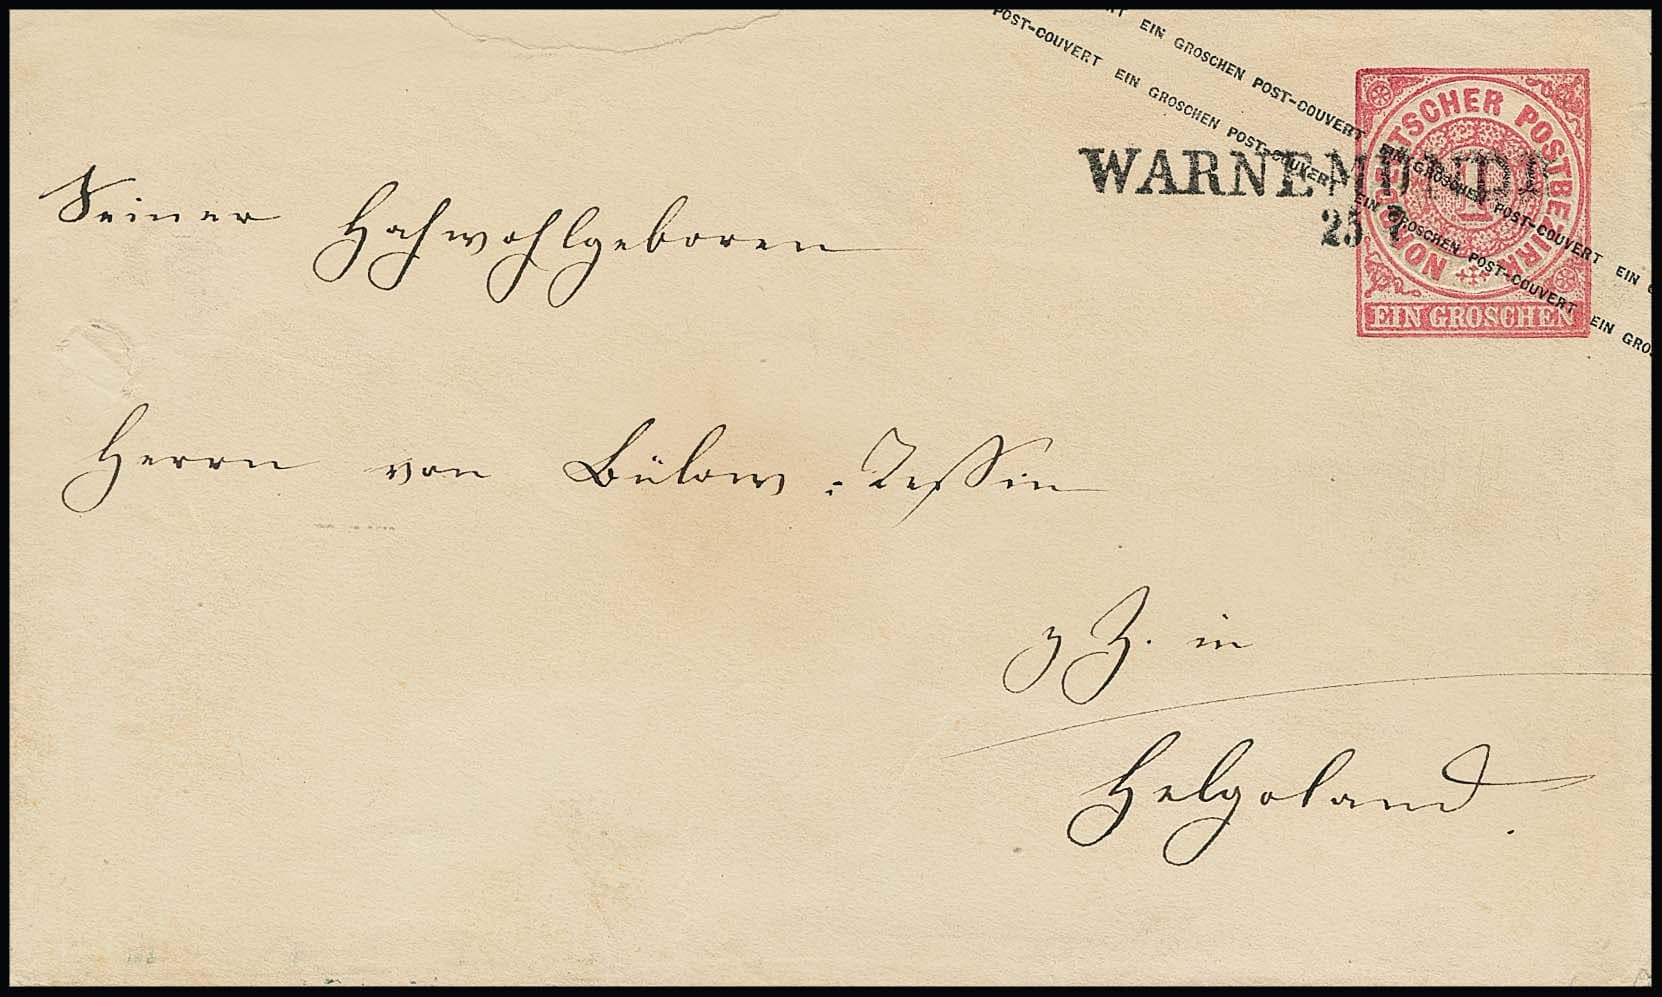 RT EIN GROSCHEN POST-COUVERT EIN GROSCHEN POST-COUVERT EIN G
POST-COUVERT EIN GROSCHEN POST-COUVERT EIN GROSCHEN POST-COUVERT EIN GRO
NORDDEUTSCHER POSTBEZIRK
1
EIN GROSCHEN
WARNEMÜNDE
25 7
Seiner Hochwohlgeboren
Herrn von Bülow-Tessin
z Z. in
Helgoland.